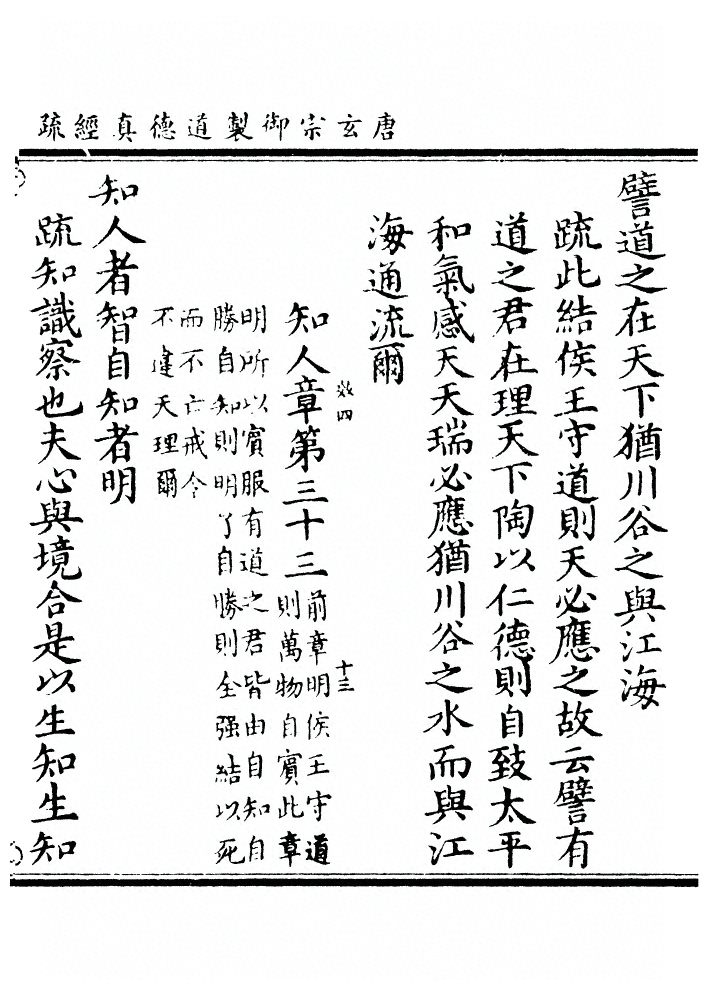 唐玄宗御製道德真經疏
譬道之在天下猶川谷之與江海
疏此結侯王守道則天必應之故云譬有
道之君在理天下陶以仁德則自致太平
和氣感天天瑞必應猶川谷之水而與江
海通流爾
效四
十三
知人章第三十三
前章明侯王守道
則萬物自賓此章
明所以賓服有道之君皆由自知自
勝自知則明了自勝則全强結以死
而不亡戒令
不違天理爾
知人者智自知者明
疏知識察也夫心與境合是以生知生知